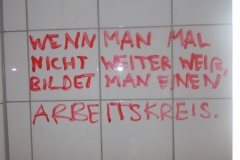 WENN MAN MAL
NICHT WEITER WEIß,
BILDET MAN EINEN
ARBEITSKREIS.